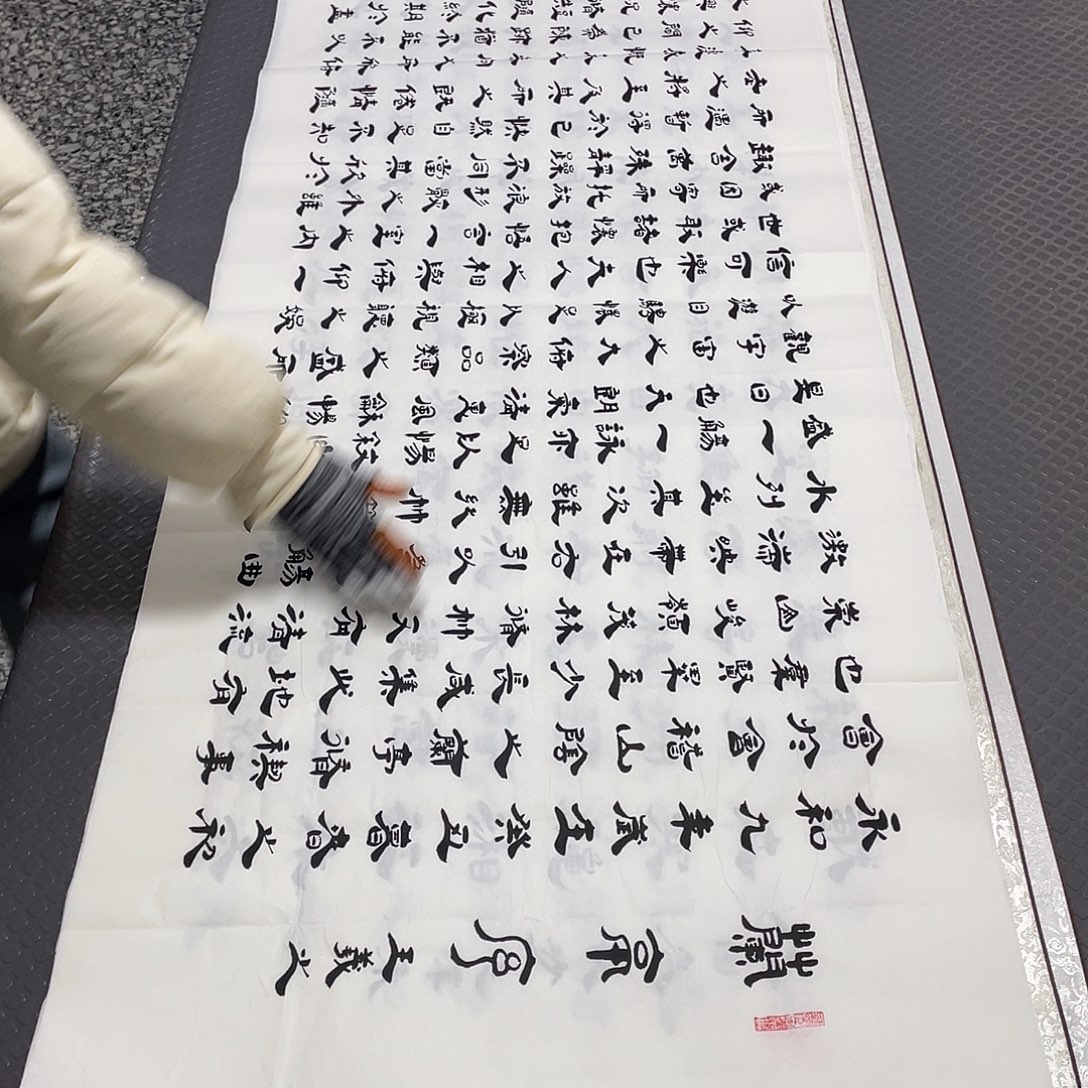 蘭亭序 王羲之
永和九年歲在癸丑暮春之初
會於會稽山陰之蘭亭脩禊事
也羣賢畢至少長咸集此地有
崇山峻領茂林脩竹又有清流
激湍映帶左右引以為觴曲
水列坐其次雖無絲竹
盛一觴一詠亦足以暢敘
是日也天朗氣清惠風龢暢
觀宇宙之大俯察品類之盛所
以遊目騁懷足以極視聽之娛
信可樂也夫人之相與俯仰一
世或取諸懷抱悟言一室之內
或因寄所託放浪形骸之外雖
趣舍萬殊靜躁不同當其欣於
所遇暫得於己快然自足不知
老之將至及其所之既倦情隨
仰之間已為陳跡猶不能不以